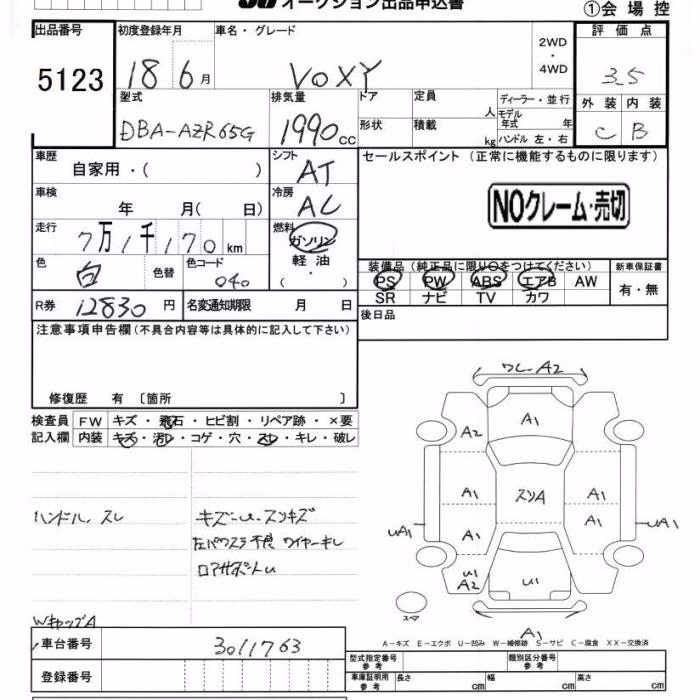 オークション出品申込書
①会場控
出品番号 初度登録年月 車名・グレード 2WD・4WD 評価点
5123 18 6月 VOXY 3.5
型式 排気量 ドア 定員 人 ディーラー・並行 外装 内装
DBA-AZR65G 1990cc 形状 積載 kg モデル年式 年 ハンドル 左・右 C B
車歴 自家用・( ) シフト AT セールスポイント (正常に機能するものに限ります)
車検 年 月( 日) 冷房 AC
NOクレーム・売切
走行 7万1千170km 燃料 ガソリン 軽油 ・( )
色 白 色替 色コード 040
装備品(純正品に限り○をつけてください) 新車保証書
PS PW ABS エアB AW 有・無
SR ナビ TV カワ
R券 12830円 名変通知期限 月 日
後日品
注意事項申告欄(不具合内容等は具体的に記入して下さい)
修復歴 有 〔箇所 〕
検査員 FW キズ・飛石・ヒビ割・リペア跡・×要
記入欄 内装 キズ・汚レ・コゲ・穴・スレ・キレ・破レ
ワレ・A2
A1
A2
A1 スリA A1
A1 A1
UA1 UA1
U1
A2
U1
スペア
A1
ハンドル スレ
キズ・U・スリキズ
左パワスラ不良 ワイヤーキレ
ロアサポートU
WキャップA
A-キズ E-エクボ U-凹み W-補修跡 S-サビ C-腐食 XX-交換済
車台番号 3011763
型式指定番号 参考 類別区分番号 参考
登録番号
車庫証明用 参考 長さ cm 幅 cm 高さ cm